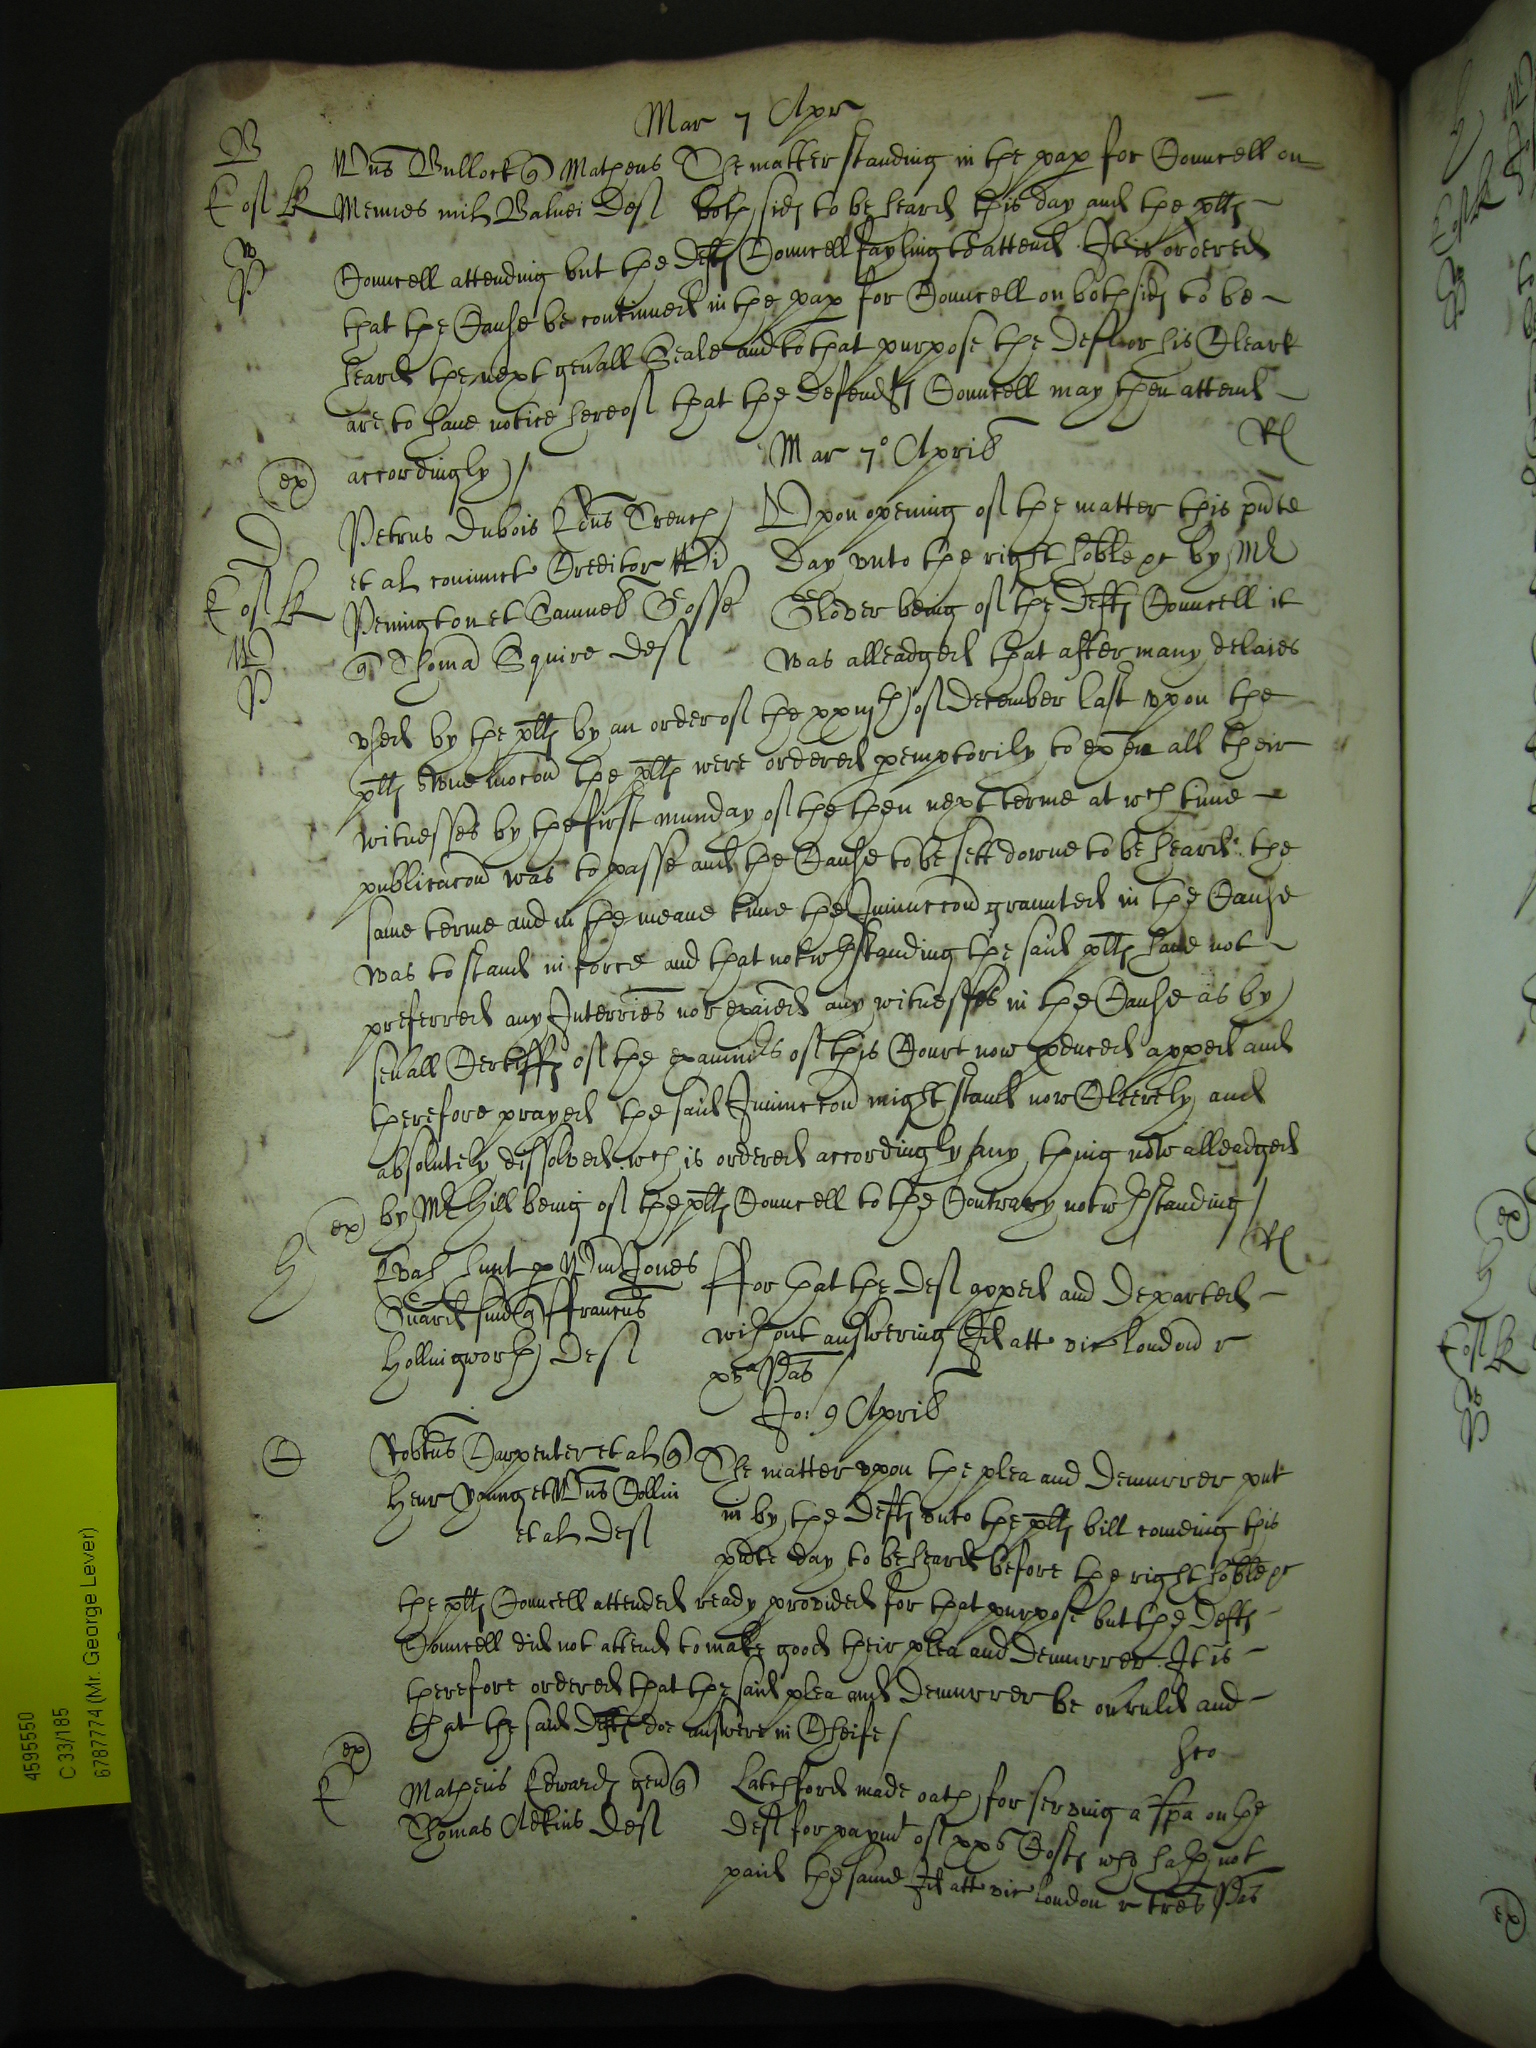 Mar 7 Apr
B
Wms Bullock q Matheus The matter standing in the pap for Councell on
E of K Mennes mil Balnei Def both sids to be heard this day and the pltfs
Councell attending but the Defts Councell fayling to attend It is ordered
that the Cause be continued in the pap for Councell on both sids to be
heard the next genall Seale and to that purpose the Deft or his Clearke
are to have notice hereof that the Defendts Councell may then attend
accordingly /
Rl
Mar 7° Aprilis
ex
D
Petrus Dubois Trench Upon opening of the matter this pnte
et al coniunct Creditor Day unto the right hoble &c by Mr
E of K Penington et Samuel Gosse Glover being of the Defts Councell it
q Thoma Squire Def was alleadged that after many delaies
used by the pltfs by an order of the xxiijth of December last upon the
pltfs owne mocon the pltfs were ordered pemptorily to exen all their
witnesses by the first munday of the then next terme at wch time
publicacon was to passe and the Cause to be sett downe to be heard the
same terme and in the meane time the Iniunccon graunted in the Cause
was to stand in force and that notwthstanding the said pltfs have not
preferred any Interries nor exaied any witnesses in the Cause as by
seuall Certiffs of the examinrs of this Court now pduced appeed and
therefore prayed the said Iniunccon might stand now Cleerely and
absolutely dissolved wch is ordered accordingly any thing now alleadged
by Mr Hill being of the pltfs Councell to the Contrary notwthstanding /
Rl
ex
H
Hunt p Wm Jones ffor that the Def appeed and Departed
Guard suu q ffrancus without answering Id att vic London r
Hollingworth Def Pas /
Jo: 9 Aprilis
C
Robtus Carpenter et al q The matter upon the plea and Demurrer put
Henr Young et Wms Collin in by the Defts unto the pltfs bill comeing this
et al Def pnte day to be heard before the right hoble &c
the pltfs Councell attended ready provided for that purpose but the Defts
Councell did not attend to make good their plea and Demurrer It is
therefore ordered that the said plea and Demurrer be ouruled and
that the said Defts doe answere in Cheife /
ex
E
Matheus Edwards gen q Latchford made oath for serving a spa on the
Thomas Adkins Def Def for paymt of xxs Costs who hath not
paid the same Id att vic London r tres Pas
4595550
C 33/185
6787774 (Mr. George Lever)